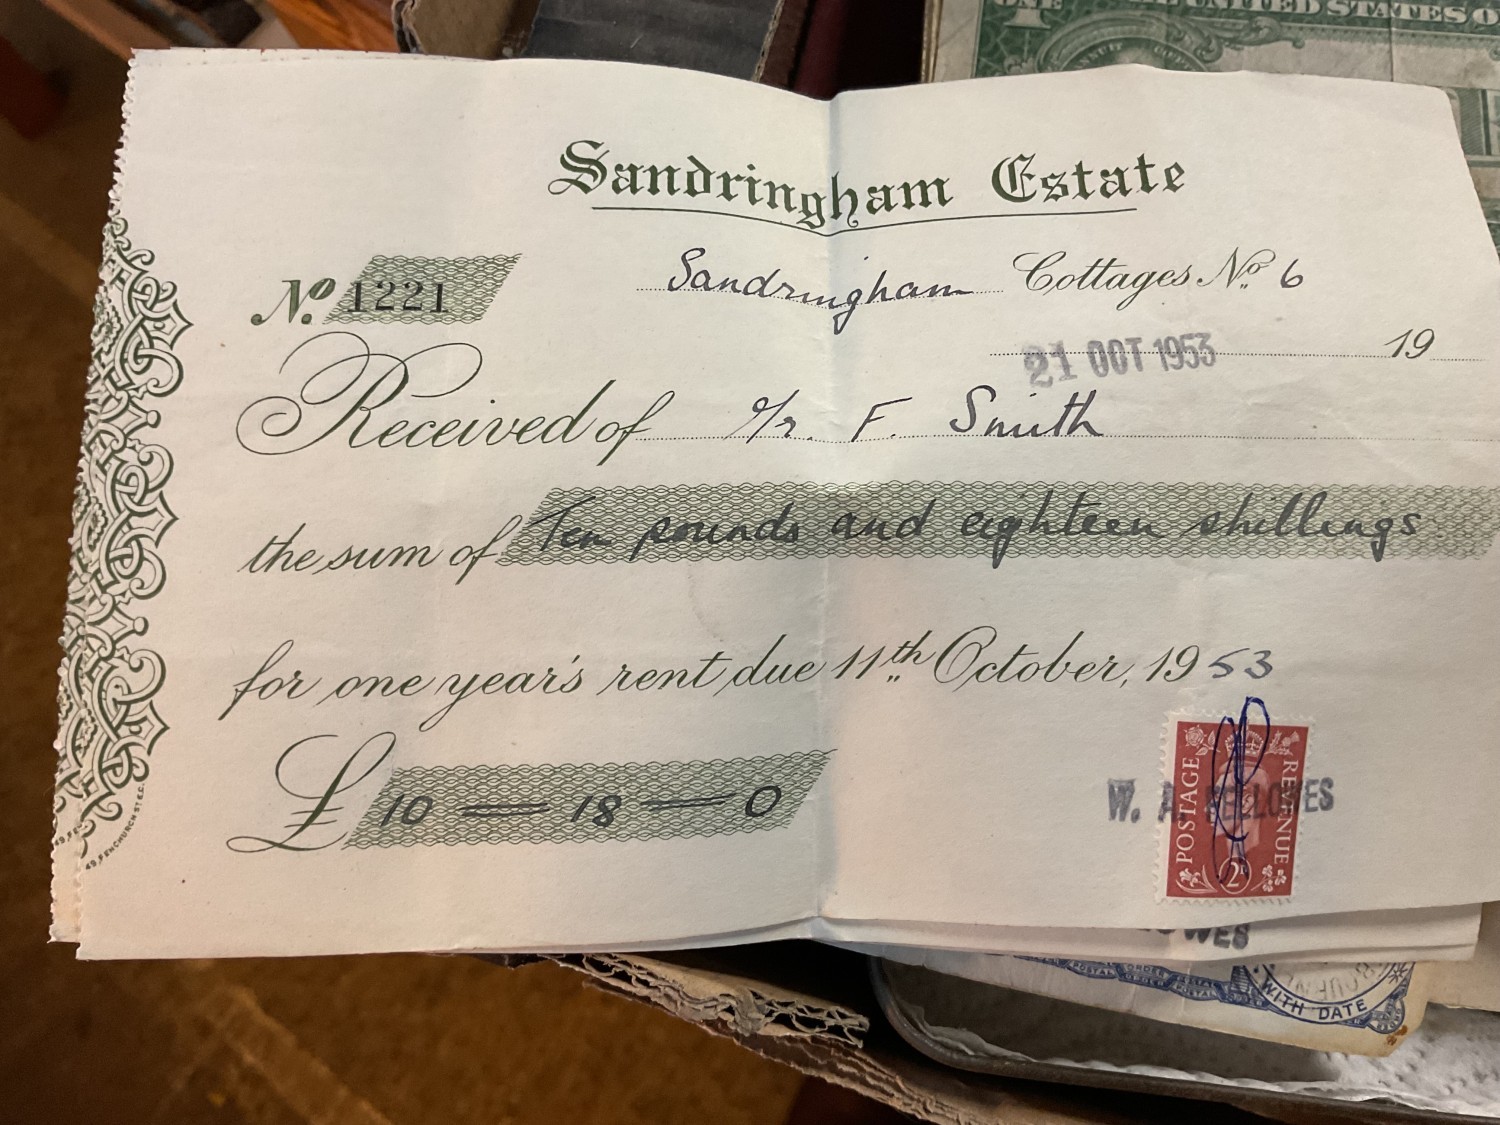 ONE
UNITED STATES O
ANNUIT
Sandringham Estate
Nº 1221
Sandringham Cottages Nº 6
21 OCT 1953 19
Received of Mr. F. Smith
the sum of Ten pounds and eighteen shillings
for one year's rent due 11th October, 1953
£ 10 = 18 = 0
W. A. FELLOWES
POSTAGE REVENUE
2D
49, FENCHURCH ST E.C.
OWES
POSTAL ORDER POSTAL
WITH DATE